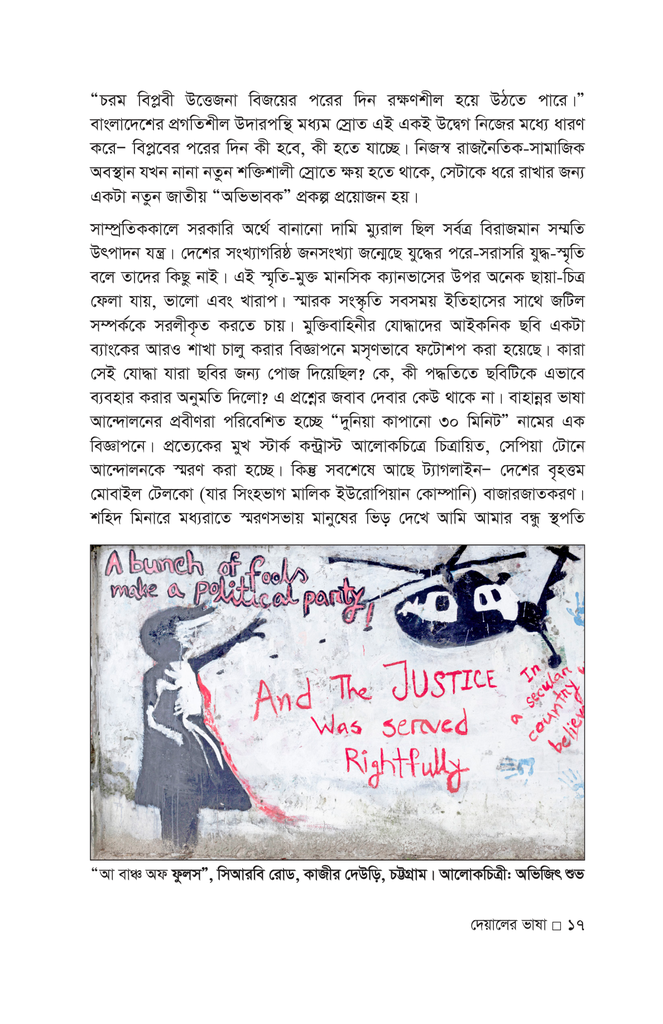 “চরম বিপ্লবী উত্তেজনা বিজয়ের পরের দিন রক্ষণশীল হয়ে উঠতে পারে।”
বাংলাদেশের প্রগতিশীল উদারপন্থি মধ্যম স্রোত এই একই উদ্বেগ নিজের মধ্যে ধারণ
করে– বিপ্লবের পরের দিন কী হবে, কী হতে যাচ্ছে। নিজস্ব রাজনৈতিক-সামাজিক
অবস্থান যখন নানা নতুন শক্তিশালী স্রোতে ক্ষয় হতে থাকে, সেটাকে ধরে রাখার জন্য
একটা নতুন জাতীয় “অভিভাবক” প্রকল্প প্রয়োজন হয়।
সাম্প্রতিককালে সরকারি অর্থে বানানো দামি ম্যুরাল ছিল সর্বত্র বিরাজমান সম্মতি
উৎপাদন যন্ত্র। দেশের সংখ্যাগরিষ্ঠ জনসংখ্যা জন্মেছে যুদ্ধের পরে-সরাসরি যুদ্ধ-স্মৃতি
বলে তাদের কিছু নাই। এই স্মৃতি-মুক্ত মানসিক ক্যানভাসের উপর অনেক ছায়া-চিত্র
ফেলা যায়, ভালো এবং খারাপ। স্মারক সংস্কৃতি সবসময় ইতিহাসের সাথে জটিল
সম্পর্ককে সরলীকৃত করতে চায়। মুক্তিবাহিনীর যোদ্ধাদের আইকনিক ছবি একটা
ব্যাংকের আরও শাখা চালু করার বিজ্ঞাপনে মসৃণভাবে ফটোশপ করা হয়েছে। কারা
সেই যোদ্ধা যারা ছবির জন্য পোজ দিয়েছিল? কে, কী পদ্ধতিতে ছবিটিকে এভাবে
ব্যবহার করার অনুমতি দিলো? এ প্রশ্নের জবাব দেবার কেউ থাকে না। বাহান্নর ভাষা
আন্দোলনের প্রবীণরা পরিবেশিত হচ্ছে “দুনিয়া কাপানো ৩০ মিনিট” নামের এক
বিজ্ঞাপনে। প্রত্যেকের মুখ স্টার্ক কন্ট্রাস্ট আলোকচিত্রে চিত্রায়িত, সেপিয়া টোনে
আন্দোলনকে স্মরণ করা হচ্ছে। কিন্তু সবশেষে আছে ট্যাগলাইন– দেশের বৃহত্তম
মোবাইল টেলকো (যার সিংহভাগ মালিক ইউরোপিয়ান কোম্পানি) বাজারজাতকরণ।
শহিদ মিনারে মধ্যরাতে স্মরণসভায় মানুষের ভিড় দেখে আমি আমার বন্ধু স্থপতি
A bunch of fools
make a political party!
And The JUSTICE
Was serrved
Rightfully
In
a secular
country
believe
“আ বাঞ্চ অফ ফুলস”, সিআরবি রোড, কাজীর দেউড়ি, চট্টগ্রাম। আলোকচিত্রী: অভিজিৎ শুভ
দেয়ালের ভাষা □ ১৭